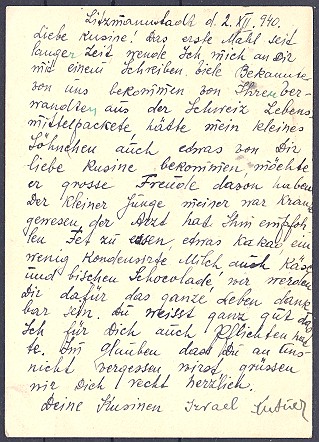 Litzmannstadt d. 2. XII. 940.
Liebe Kusine! Das erste Mahl seit
langer Zeit wende Ich mich an Dir
mit einem Schreiben. Viele Bekannte
von uns bekommen von Ihren Ver-
wandten aus der Schweiz Lebens-
mittelpackete hätte mein kleines
Söhnchen auch etwas von Dir
liebe Kusine bekommen, möchte
er grosse Freude davon haben.
Der kleiner Junge meiner war krank
gewesen, der Arzt hat Ihm empfoh-
len Fet zu essen, etwas Kakao, ein
wenig Kondensirte Milch, auch Käse
und bischen Schocolade, wir werden
Dir dafür das ganze Leben dank-
bar sein. Du weisst ganz gut das
Ich für Dich auch Pflichten hat-
te. Im glauben dass Du an Uns
nicht vergessen wirst, grüssen
wir Dich recht herzlich.
Deine Kusinen Israel